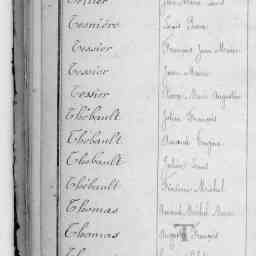 Tesnière Louis Pierre
Tessier François Jean Marie
Tessier Jean Marie
Tessier Pierre Marie Augustin
Thébault Julien François
Thébault Amand Eugène
Thébault Julien Louis
Thébault Michel
Thomas Amand Michel Marie
Thomas François